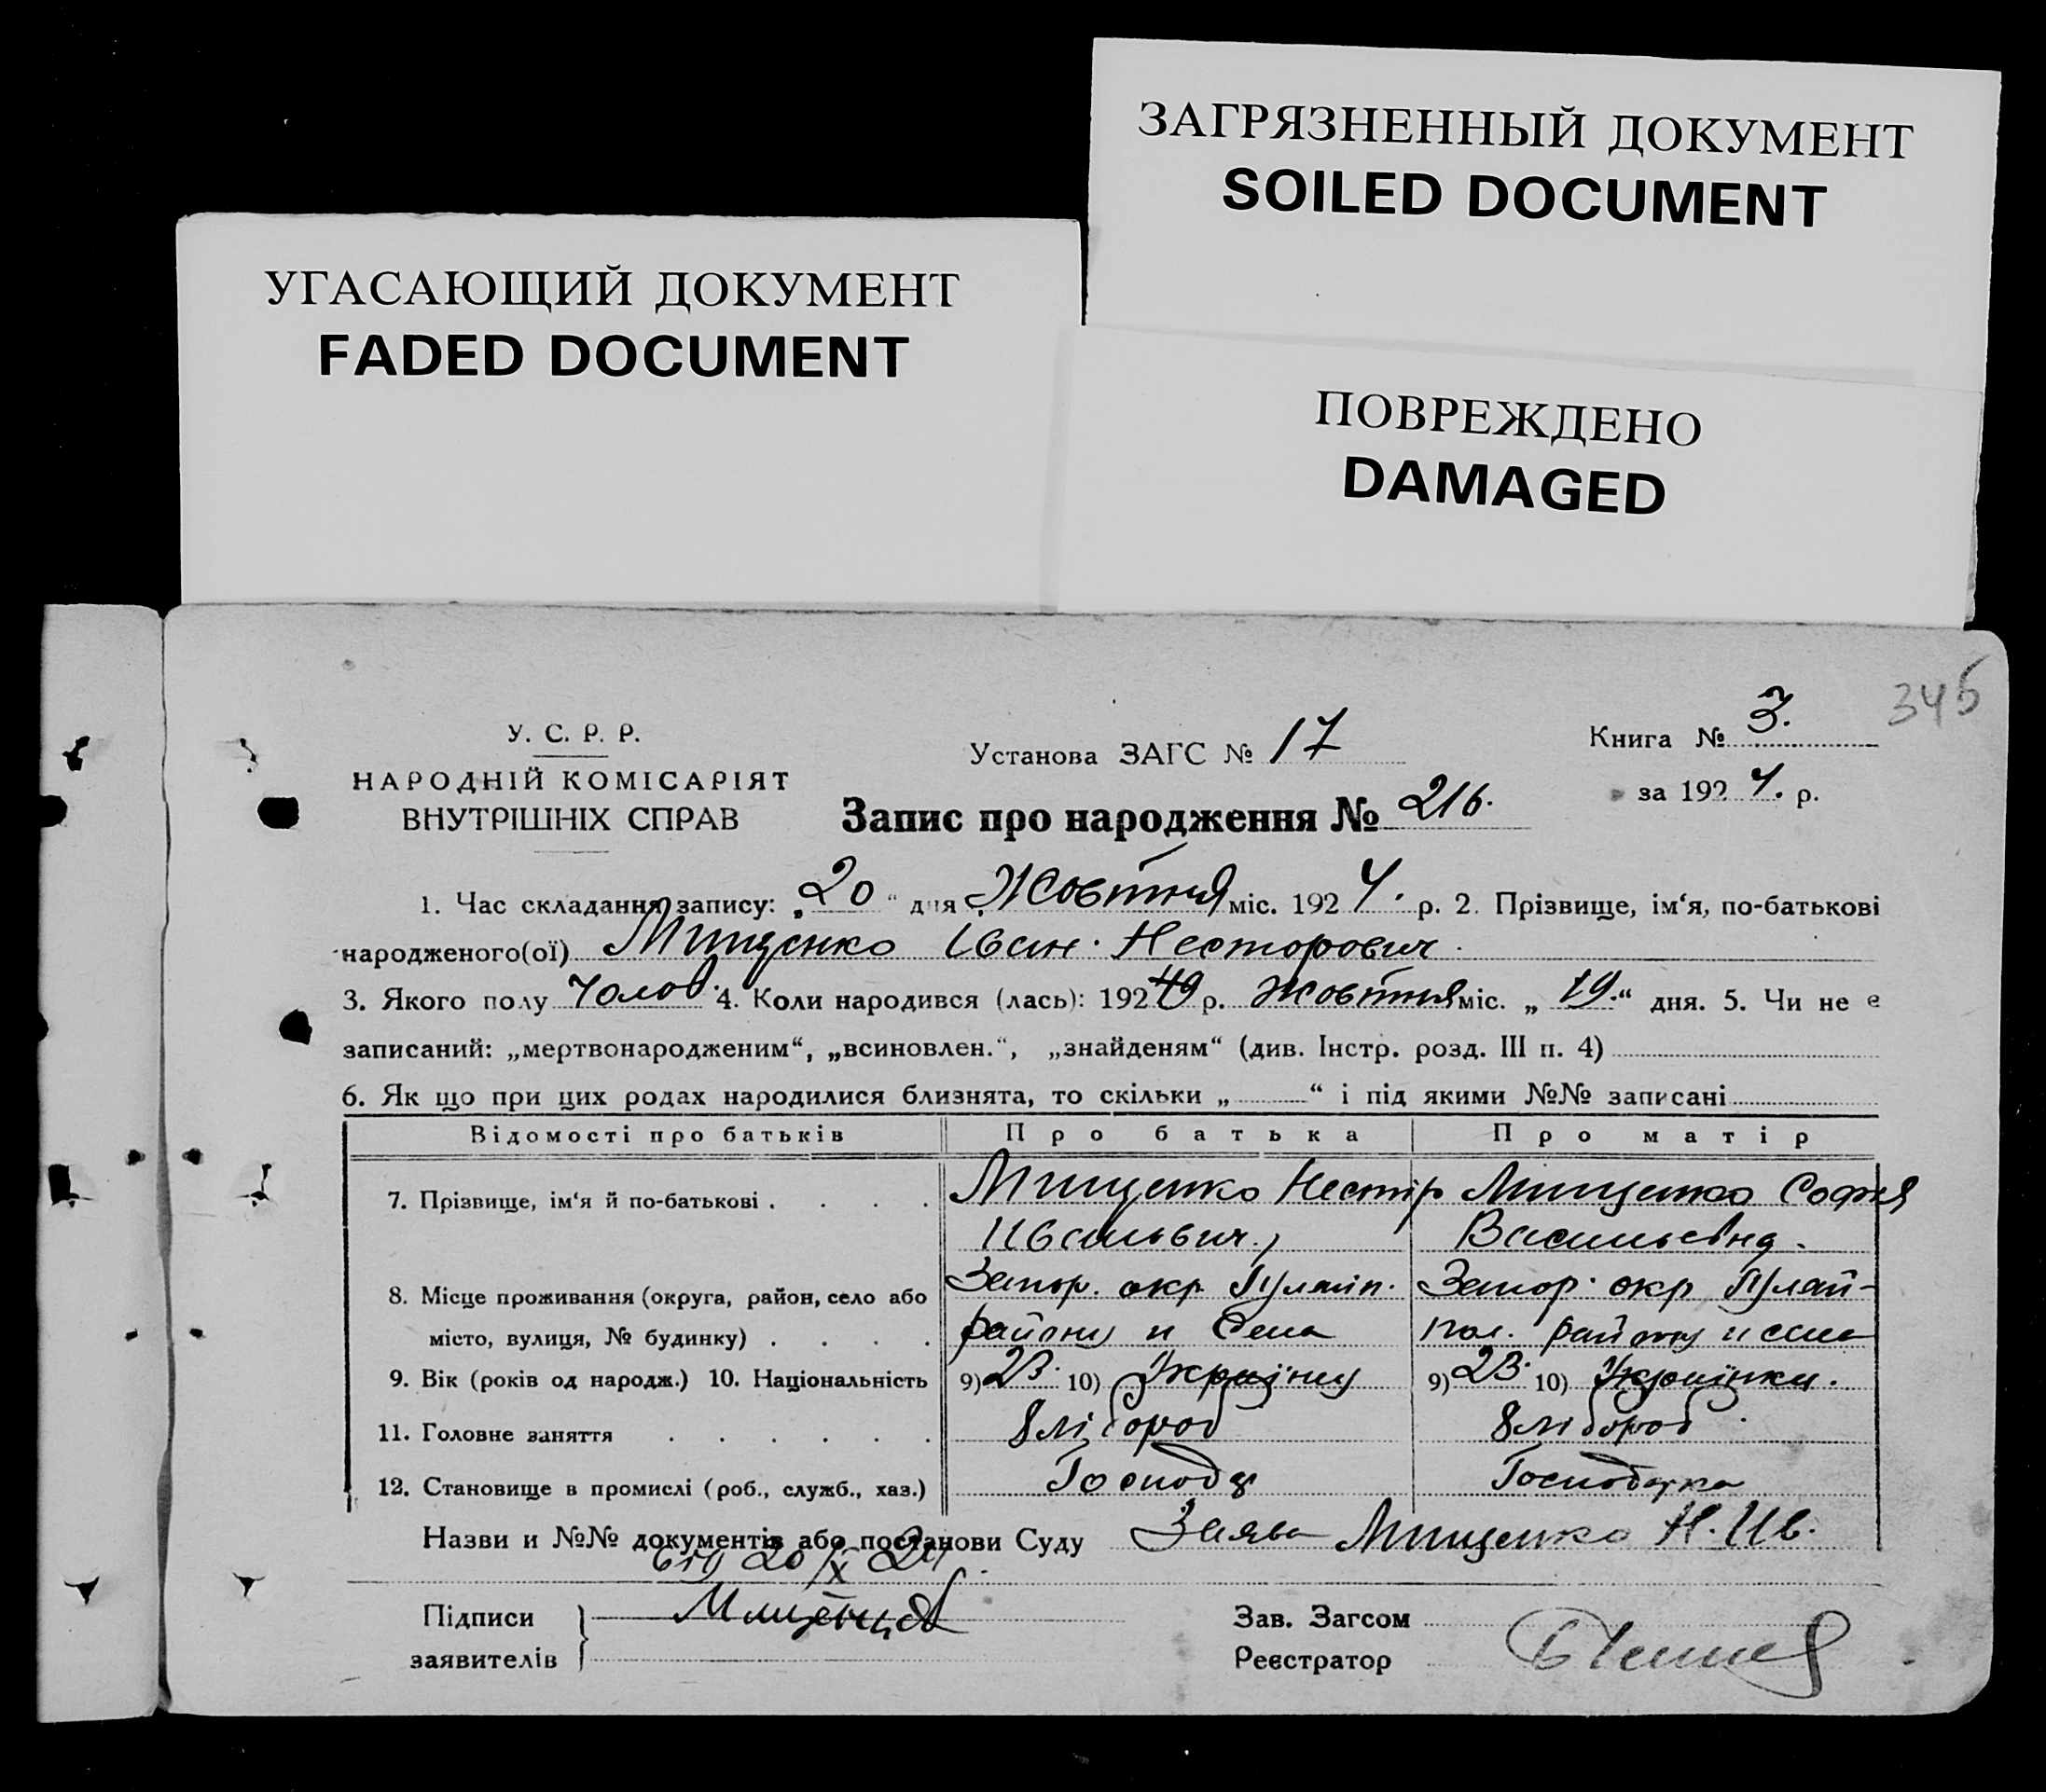 ЗАГРЯЗНЕННЫЙ ДОКУМЕНТ
SOILED DOCUMENT
УГАСАЮЩИЙ ДОКУМЕНТ
FADED DOCUMENT
ПОВРЕЖДЕНО
DAMAGED
345
У. С. Р. Р.
НАРОДНІЙ КОМІСАРІЯТ
ВНУТРІШНІХ СПРАВ
Установа ЗАГС № 17
Книга № 3.
за 1924. р.
Запис про народження № 216.
1. Час складання запису: „20“ дня Жовтня міс. 1924. р. 2. Прізвище, ім‘я, по-батькові
народженого(ої) Мищенко Іван Несторович
3. Якого полу Чолов. 4. Коли народився (лась): 192 р. Жовтня міс. „19.“ дня. 5. Чи не є
записаний: „мертвонародженим“, „всиновлен.“, „знайденям“ (див. Інстр. розд. III п. 4)
6. Як що при цих родах народилися близнята, то скільки „ “ і під якими №№ записані
Відомості про батьків Про батька Про матір
7. Прізвище, ім‘я й по-батькові . . . . Мищенко Нестір Мищенко София
Васильевна.
8. Місце проживання (округа, район, село або Запор. окр. Гуляйп. Запор. окр Гуляй-
місто, вулиця, № будинку) . . . . району и Села пол. району и села
9. Вік (років од народж.) 10. Національність 9) 23. 10) 9) 23. 10) Українка.
11. Головне заняття . . . . . . Хлібороб Хлібороб
12. Становище в промислі (роб., служб., хаз.) Господар Господарка
Назви и №№ документів або постанови Суду Заява Мищенко Н. Ив.
від 20/X 24
Підписи Мищенко
заявителів
Зав. Загсом
Реєстратор